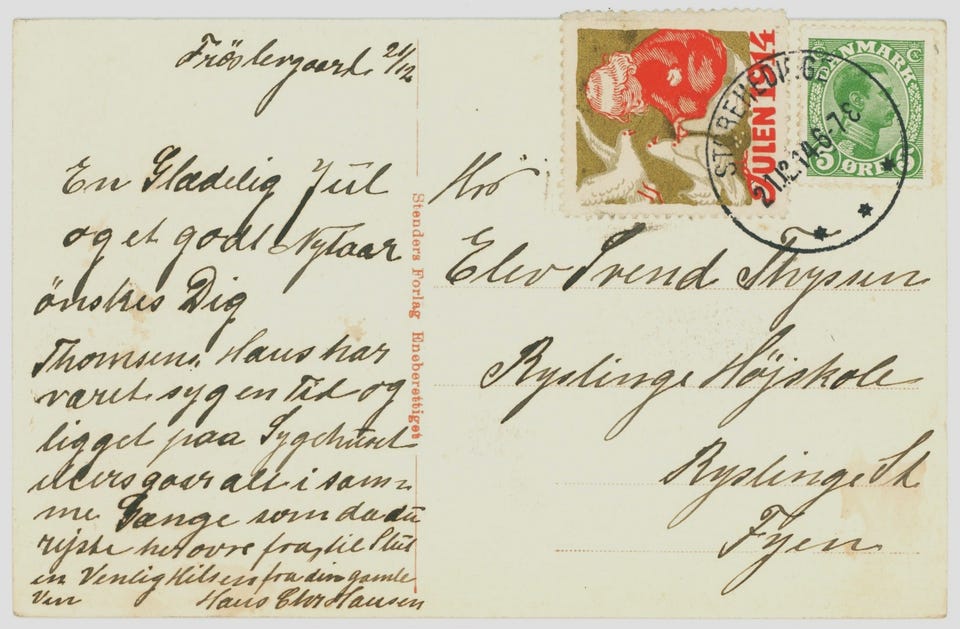 Fröslevgaard 21/12
En Glædelig Jul
og et godt Nytaar
önskes Dig
Thomsens Hans har
været syg en Tid og
ligget paa Sygehuset
ellers gaar alt i sam-
me Gænge som da du
rejste herovre fra, til Slut
en Venlig Hilsen fra din gamle
Ven Hans Chr Hansen
Stenders Forlag Eneberettiget
JULEN 1914
DANMARK
5 ØRE 5
21.12.14.6-7E
Hrr
Elev Svend Thysen
Ryslinge Højskole
Ryslinge St
Fyen